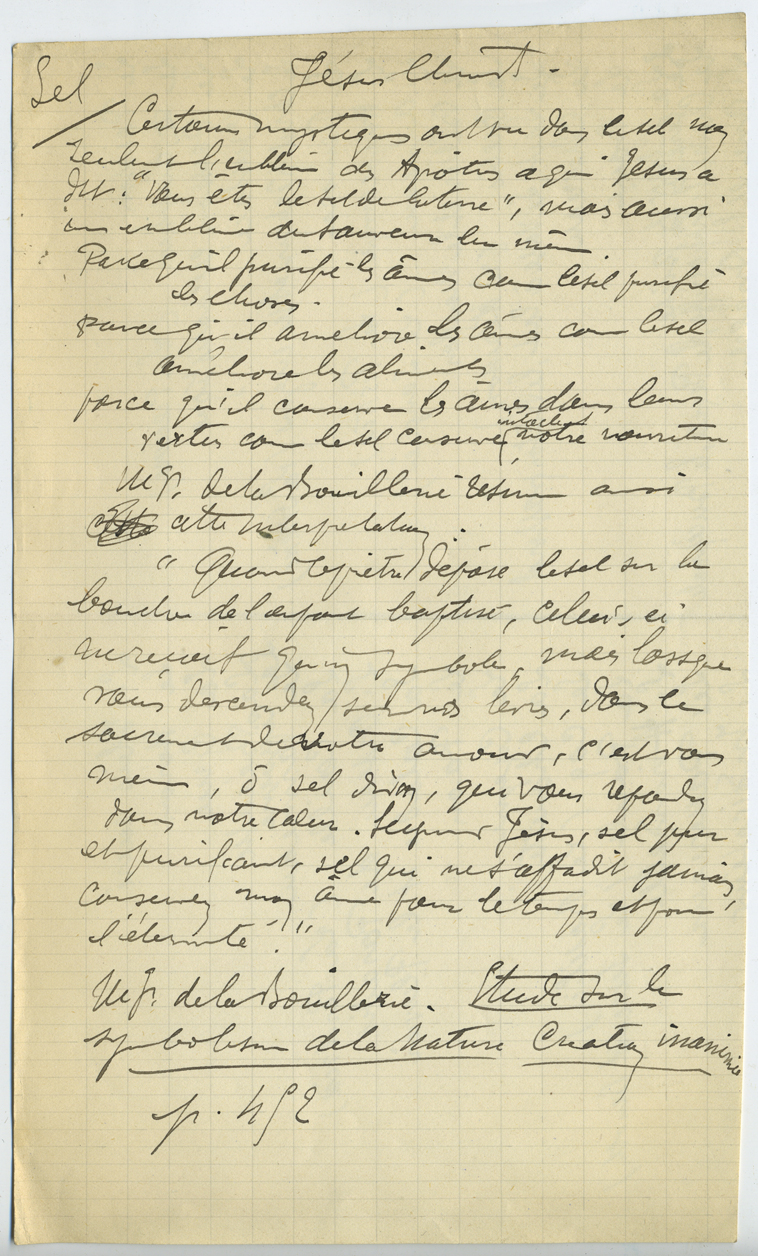 Sel
Jésus Christ -
Certains mystiques ont vu dans le sel non
seulement l'emblème des Apôtres a qui Jesus a
dit : "Vous êtes le sel de la terre", mais aussi
un emblème du Sauveur lui même
Parce qu'il purifie les âmes com le sel purifie
les choses -
parce qu'il améliore les âmes com le sel
améliore les aliments
parce qu'il conserve les âmes dans leurs
vertus com le sel conserve intacte notre nourriture
Mgr. de la Bouillerie résume ainsi
cette interpretation :
" Quand le prêtre dépose le sel sur la
bouche de l'enfant baptisé, celui-ci
ne reçoit qu'un symbole, mais lorsque
vous descendez sur nos lèvres, dans le
sacrement de votre amour, c'est vous
même, ô sel divin, qui vous répandez
dans notre cœur. Seigneur Jésus, sel pur
et purifiant, sel qui ne s'affadit jamais,
conservez mon âme pour le temps et pour
l'éternité !"
Mgr. de la Bouillerie. Etude sur le
symbolisme de la Nature Création inanimée
p. 452